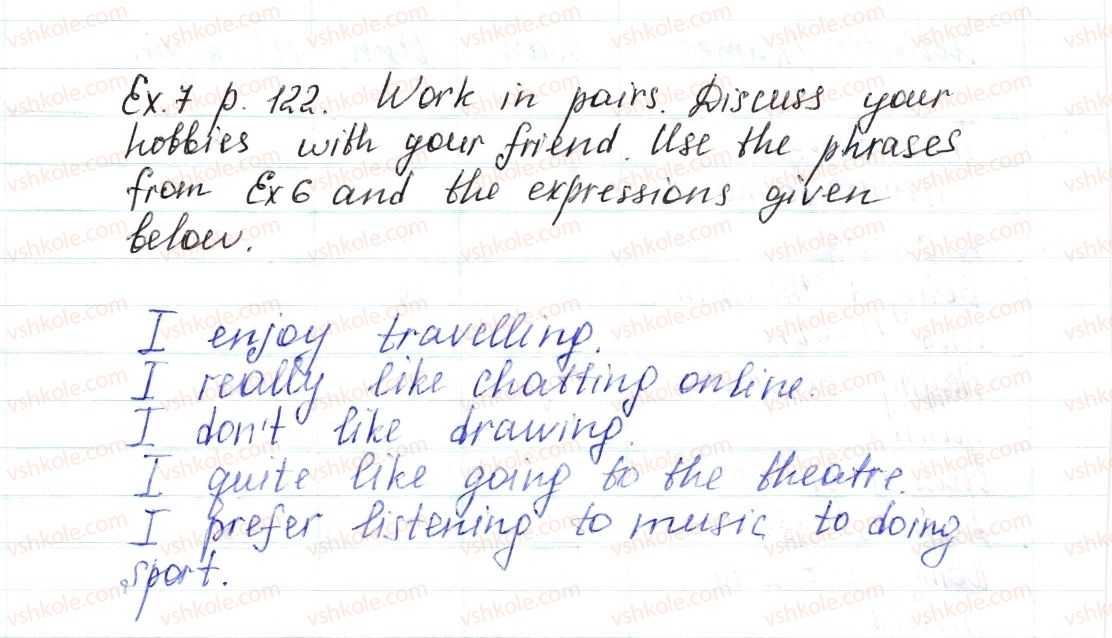 Ex. 7 p. 122. Work in pairs. Discuss your
hobbies with your friend. Use the phrases
from Ex 6 and the expressions given
below.
I enjoy travelling.
I really like chatting online.
I don't like drawing.
I quite like going to the theatre.
I prefer listening to music to doing
sport.